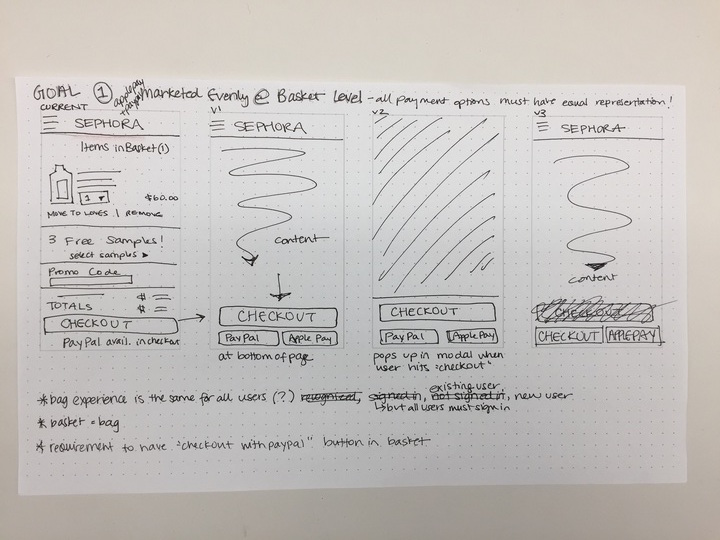 GOAL ① applepay + paypal marketed Evenly @ Basket Level - all payment options must have equal representation!
CURRENT
SEPHORA
Items in Basket (1)
1
$60.00
MOVE TO LOVES | REMOVE
3 Free Samples!
select samples
Promo Code
TOTALS $
$
CHECKOUT
PayPal avail. in checkout
V1
SEPHORA
content
CHECKOUT
PayPal Apple Pay
at bottom of page
V2
CHECKOUT
PayPal Apple Pay
pops up in modal when
user hits "checkout"
V3
SEPHORA
content
CHECKOUT
CHECKOUT APPLEPAY
* bag experience is the same for all users (?) recognized, signed in, not signed in, new user
existing user
↳ but all users must sign in
* basket = bag
* requirement to have "checkout with paypal" button in basket